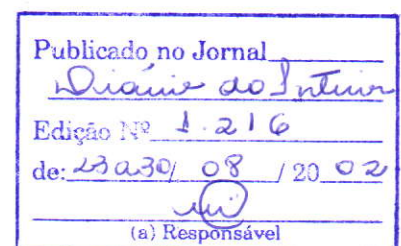 Publicado no Jornal
Diário do Interior
Edição Nº 1.216
de: 23 a 30/ 08 / 20 02
(a) Responsável